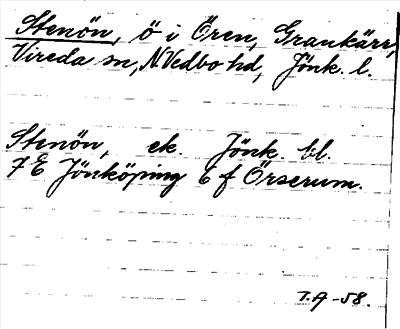 Stenön, ö i Ören, Grankärr,
Vireda sn, N. Vedbo hd, Jönk. l.
Stenön, ek. Jönk. bl.
7 E Jönköping 6 f Örserum.
T.A -58.